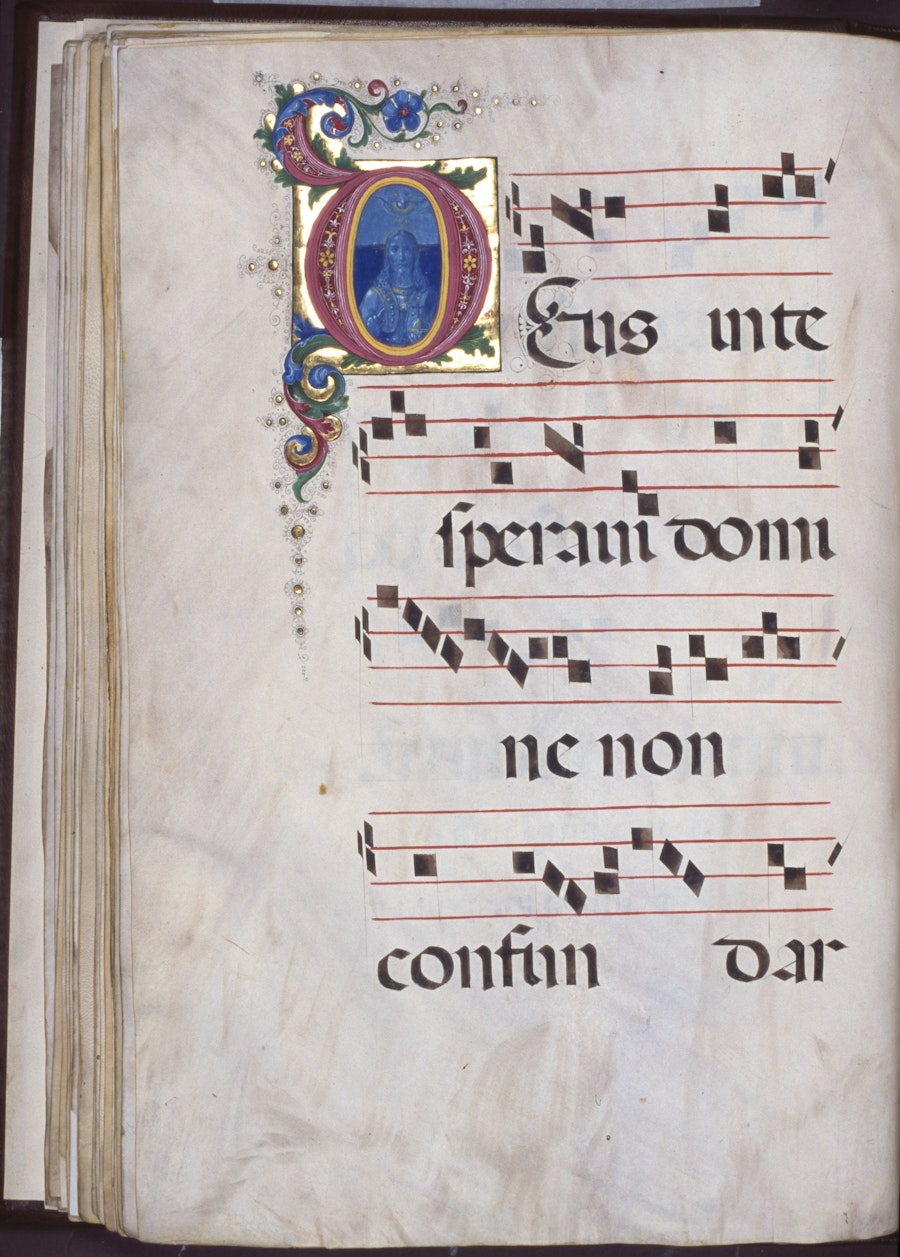 DEus inte
speraui domi
ne non
confun dar